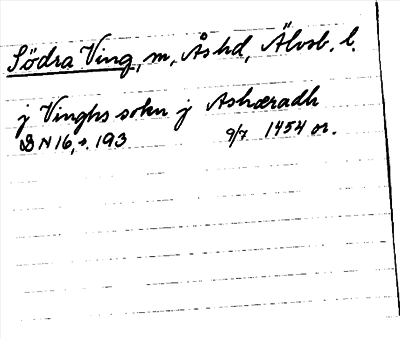 Södra Ving, sn, Ås hd, Älvsb. l.
j Vinghs sokn j Ashæradh
DN 16, s. 193 9/7 1454 or.